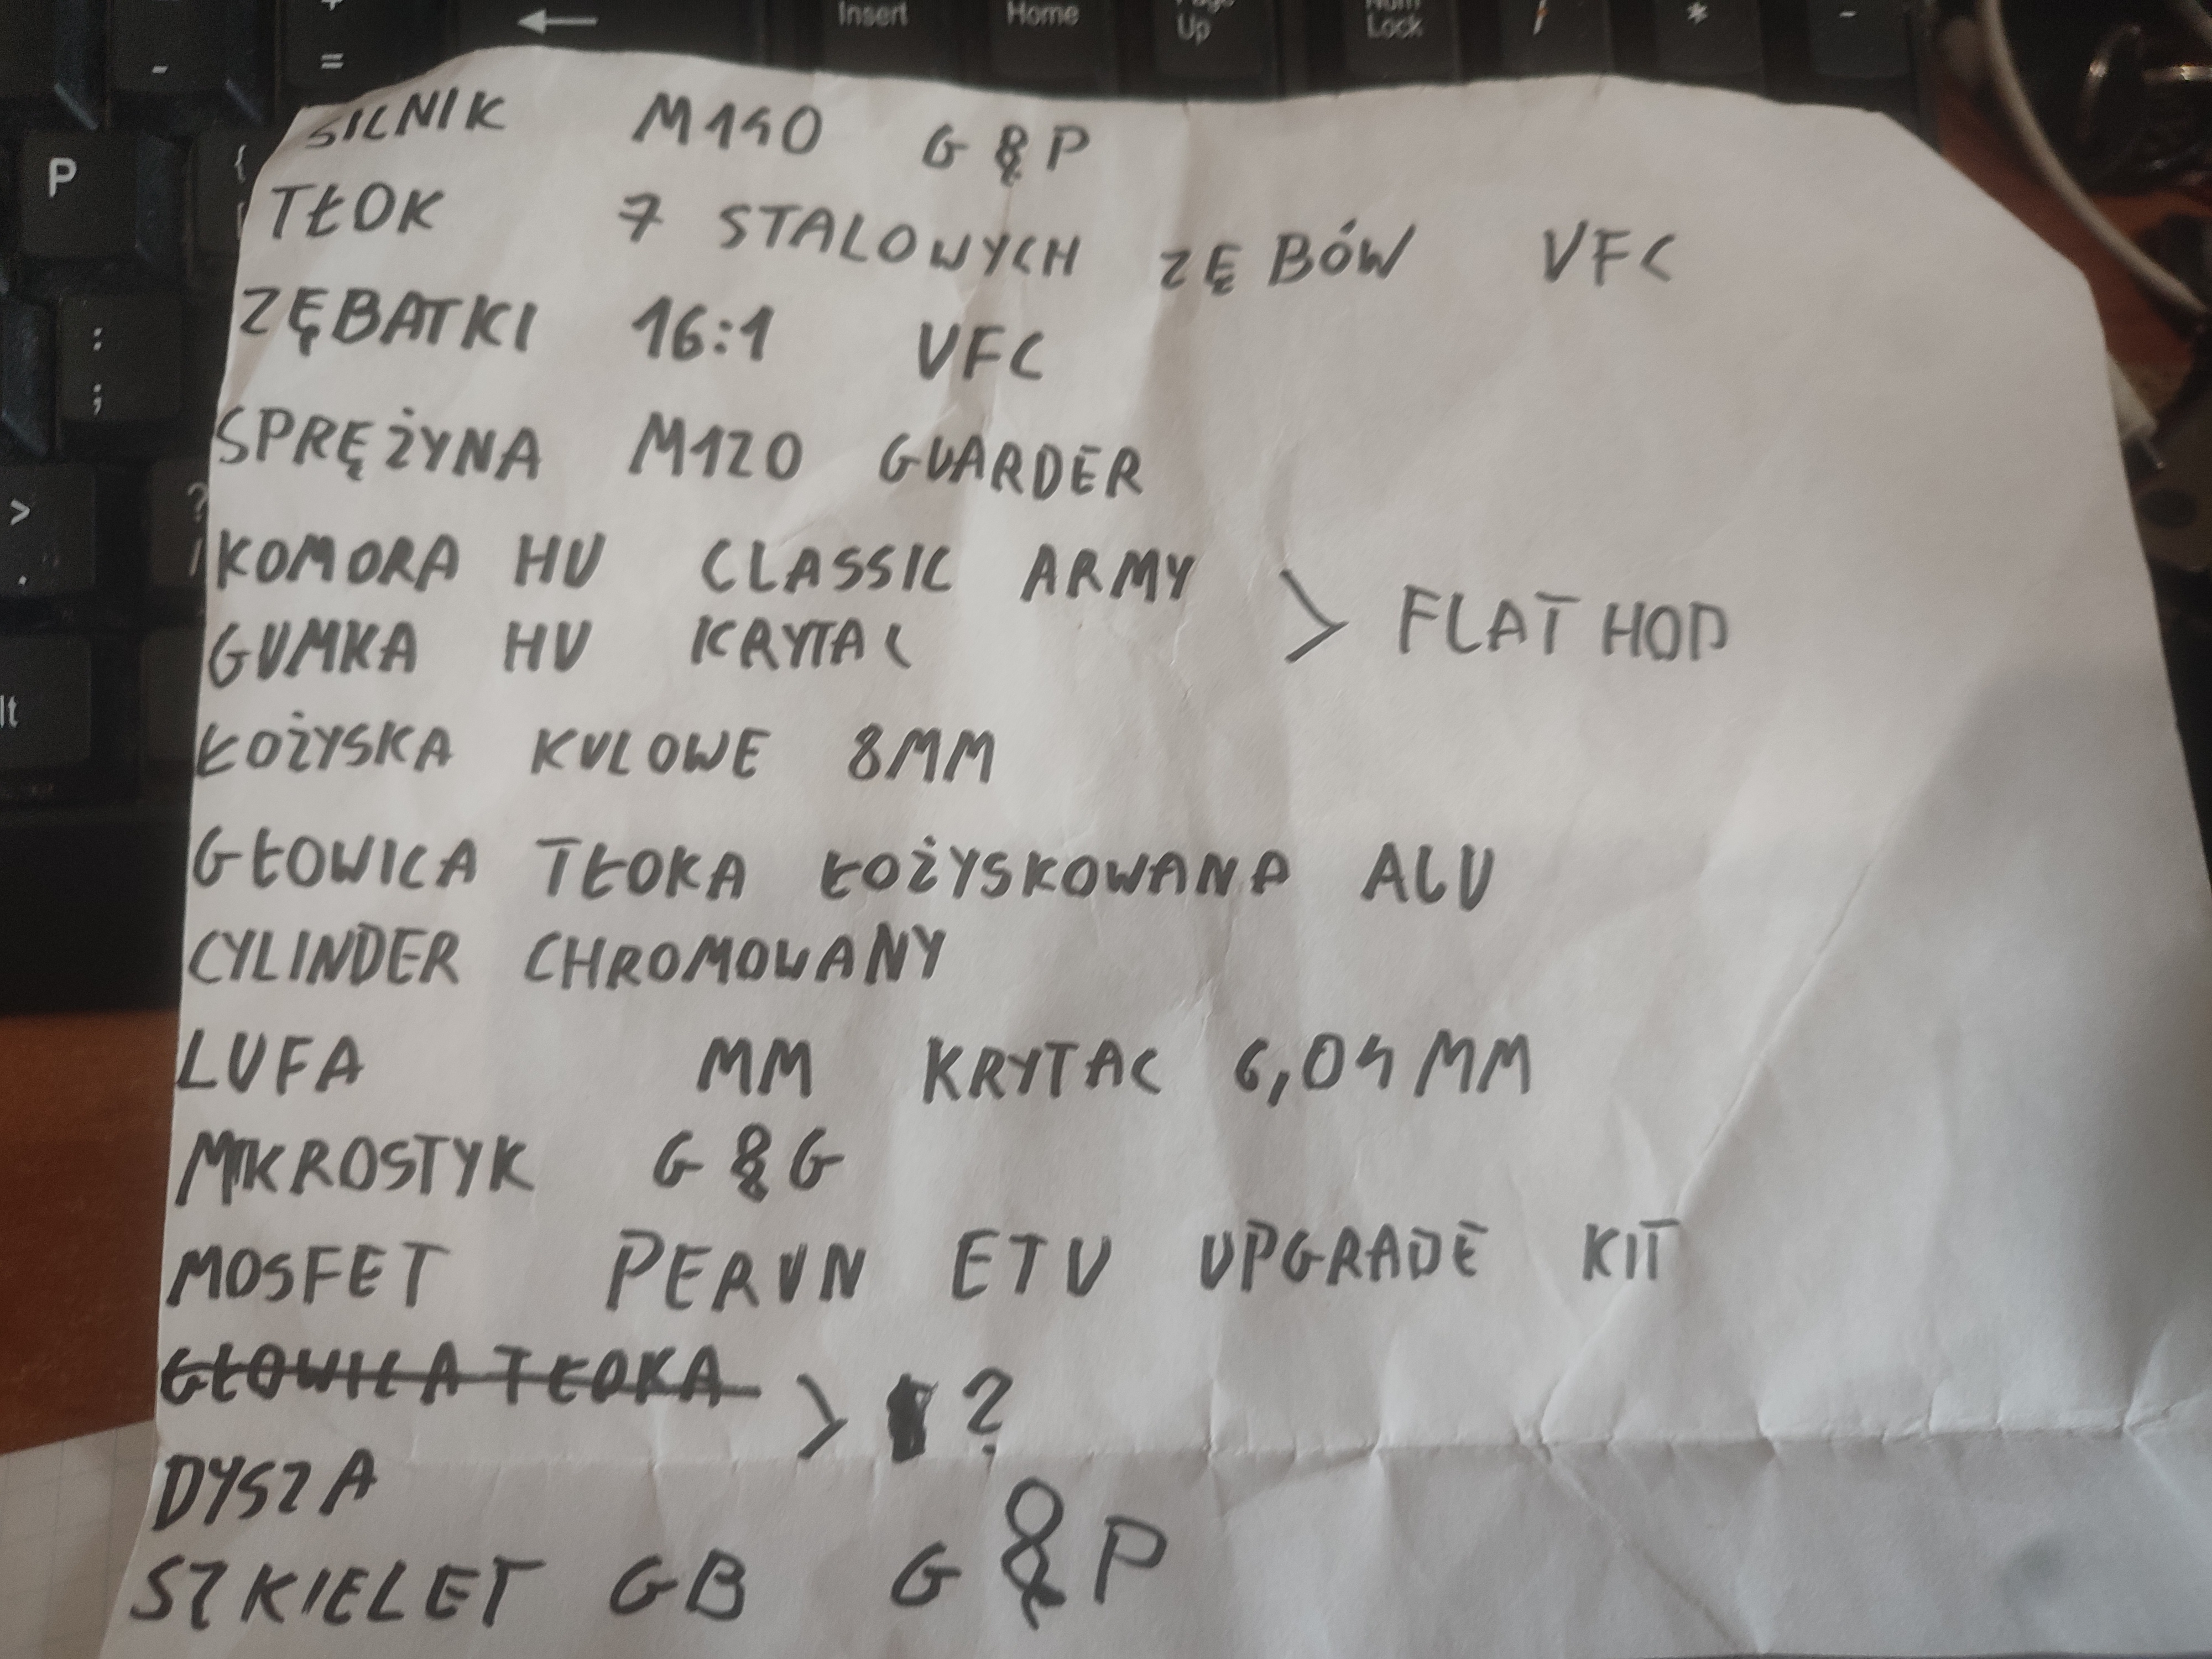 ← Insert Home Page Up Num Lock / * -
- + =
P {
: ;
> . ?
lt
SILNIK M140 G&P
TŁOK 7 STALOWYCH ZĘBÓW VFC
ZĘBATKI 16:1 VFC
SPRĘŻYNA M120 GUARDER
KOMORA HU CLASSIC ARMY
GUMKA HU KRYTAC
> FLAT HOP
ŁOŻYSKA KULOWE 8MM
GŁOWICA TŁOKA ŁOŻYSKOWANA ALU
CYLINDER CHROMOWANY
LUFA MM KRYTAC 6,04MM
MIKROSTYK G&G
MOSFET PERUN ETU UPGRADE KIT
GŁOWICA TŁOKA
> ?
DYSZA
SZKIELET GB G&P